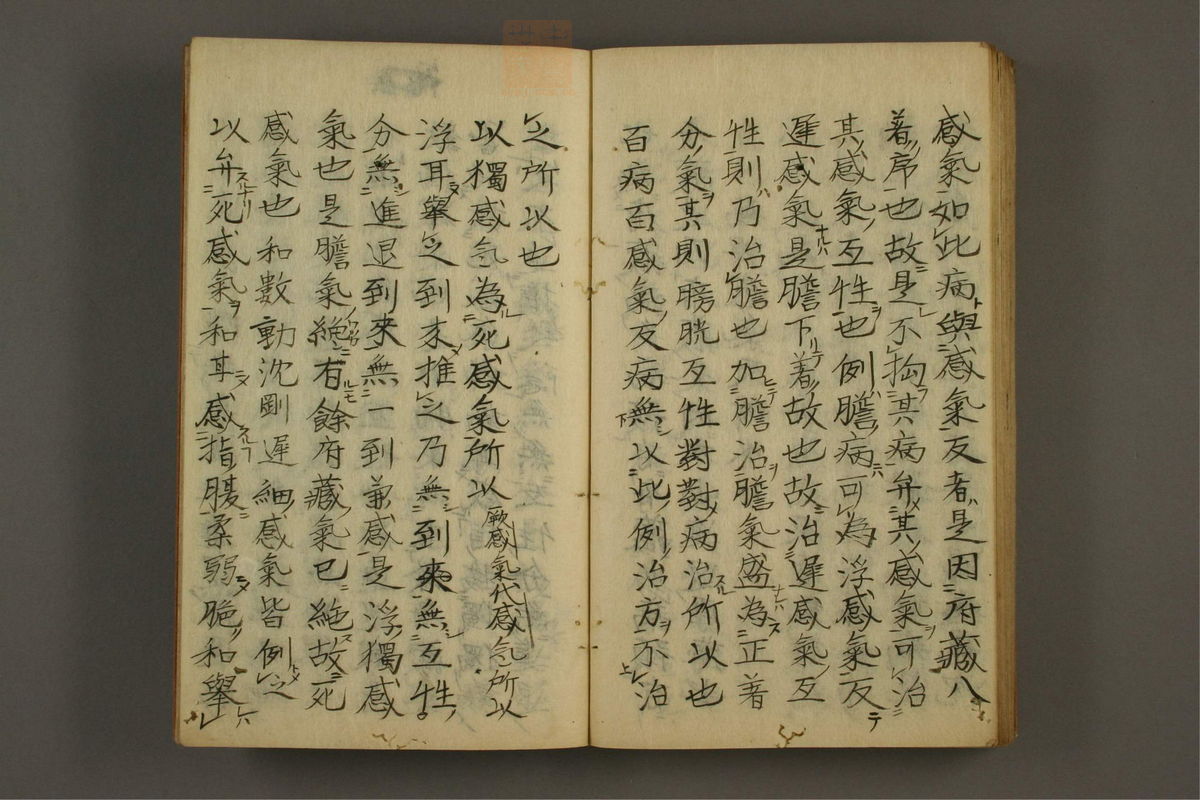 感氣如此病與感氣反者是因府藏八
著席也故是不拘其病弁其感氣可治
其感氣互性也例膽病可為浮感氣反
遲感氣是膽下著故也故治遲感氣互
性則乃治膽也加膽治膽氣盛為正著
分氣其則膀胱互性對對病治所以也
百病百感氣反病無以此例治方不治
之所以也
以獨感気為死感氣所以厥感氣代感気所以
浮耳舉之到来推之乃無到來無互性
分無進退到來無一到兼感是浮獨感
氣也是膽氣絶有餘府藏氣已絶故死
感氣也和數動沈剛遲細感氣皆例之
以弁死感氣和耳感指腹柔弱脆和舉